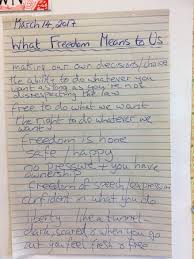 March 14, 2017
What Freedom Means to Us
making our own decisions/choice
the ability to do whatever you
want as long as you're not
disrespecting the law
free to do what we want
the right to do whatever we
want
freedom is home
safe happy
no pressure + you have
ownership
freedom of speech/expression
confident in what you do
liberty like a tunnel -
dark, scared & when you go
out you feel fresh & free